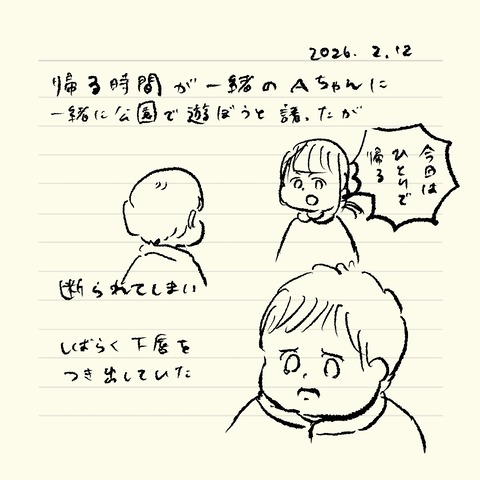 2026. 2. 12
帰る時間が一緒のAちゃんに
一緒に公園で遊ぼうと誘ったが
今日は
ひとりで
帰る
断られてしまい
しばらく下唇を
つき出していた